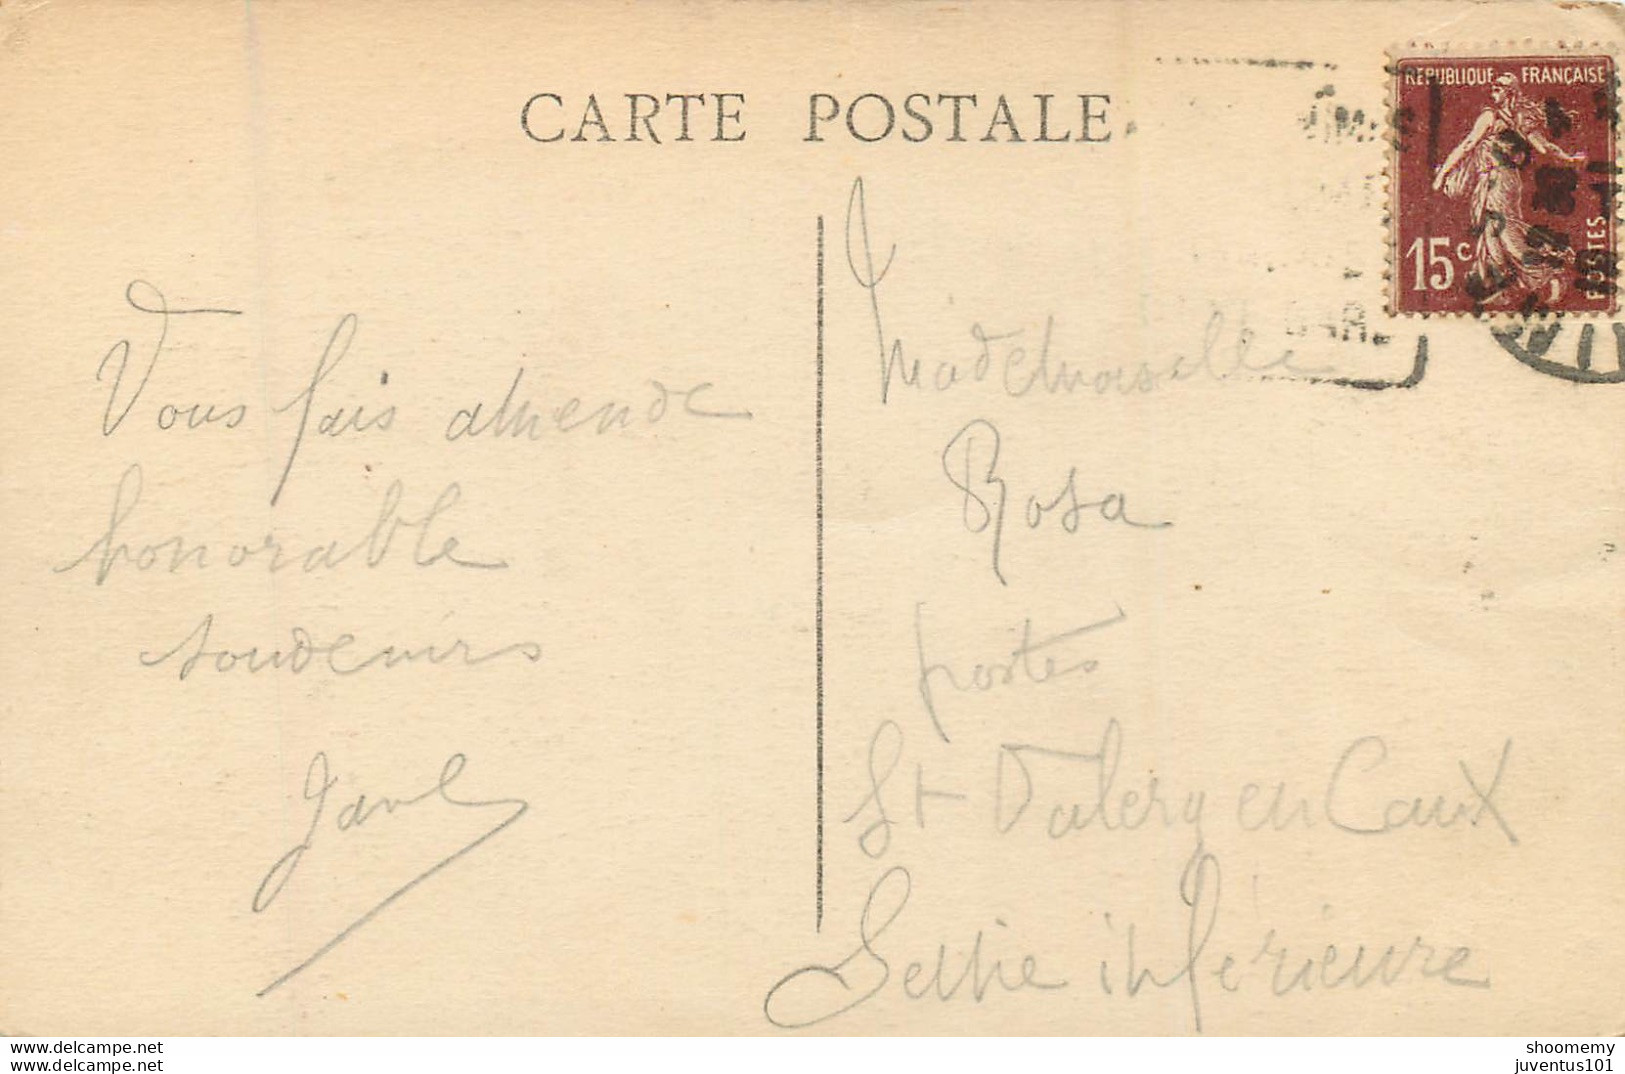 CARTE POSTALE
REPUBLIQUE FRANÇAISE
15c
POSTES
Vous fais amende
honorable
souvenirs
Mademoiselle
Rosa
postes
St Valery en Caux
Seine inférieure
www.delcampe.net
very happy to say thanks
shoomemy
juventus101